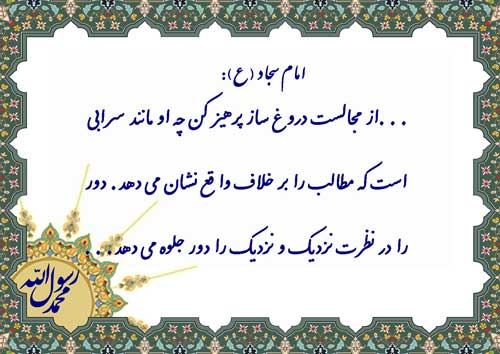 امام سجاد (ع):
...از مجالست دروغ ساز پرهیز کن چه او مانند سرابی
است که مطالب را بر خلاف واقع نشان می دهد. دور
را در نظرت نزدیک و نزدیک را دور جلوه می دهد...
محمد رسول الله